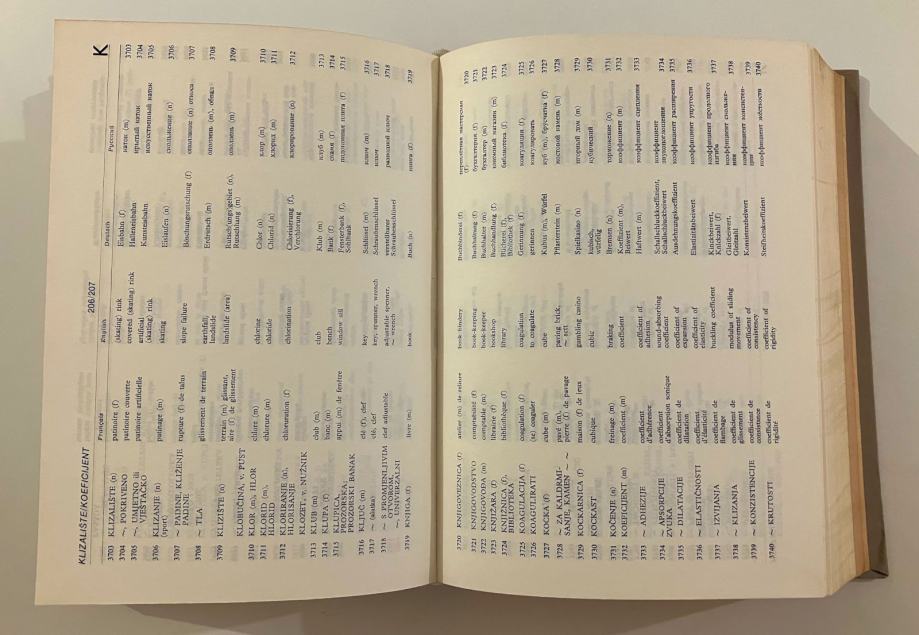 KLIZALIŠTE/KOEFICIJENT 206/207 K
Français English Deutsch Русский
3703 KLIZALIŠTE (n) patinoire (f) (skating) rink Eisbahn (f) каток (m) 3703
3704 ~, POKRIVENO patinoire couverte covered (skating) rink Halleneisbahn крытый каток 3704
3705 ~, UMJETNO ili patinoire artificielle artificial Kunsteisbahn искусственный каток 3705
VJEŠTAČKO (skating) rink
3706 KLIZANJE (n) patinage (m) skating Eislaufen (n) скольжение (n) 3706
(sport)
3707 ~ PADINE, KLIŽENJE rupture (f) de talus slope failure Böschungsrutschung (f) оползание (n) откоса 3707
PADINE
3708 ~ TLA glissement de terrain earthfall, Erdrutsch (m) оползень (m), обвал 3708
landslide
3709 KLIZIŠTE (n) terrain (m) glissant, landslide (area) оползень (m) 3709
aire (f) de glissement Rutschung (m)
KLOBUČINA, v. PUST
3710 KLOR (m), HLOR chlore (m) chlorine Chlor (n) хлор (m) 3710
3711 KLORID (m), chlorure (m) chloride Chlorid (n) хлорид (m) 3711
HLORID
3712 KLORIRANJE (n), chloruration (f) chlorination Chlorisierung (f), хлорирование (n) 3712
HLORISANJE Verchlorung
KLOZET, v. NUŽNIK
3713 KLUB (m) club (m) club Klub (m) клуб (m) 3713
3714 KLUPA (f) banc (m) bench Bank (f) скамя (f) 3714
3715 KLUPICA, appui (m) de fenêtre window sill Fensterbank (f), подоконная плита (f) 3715
PROZORSKA, Sohlbank
PROZORSKI BANAK
3716 KLJUČ (m) clé (f), clef key Schlüssel (m) ключ (m) 3716
3717 ~ (alatka) clé, clef key, spanner, wrench Schraubenschlüssel ключ 3717
3718 ~ S PROMJENLJIVIM clef adjustable adjustable spanner, verstellbarer разводной ключ 3718
OTVOROM, ~ wrench Schraubenschlüssel
~, UNIVERZALNI
3719 KNJIGA (f) livre (m) book Buch (n) книга (f) 3719
3720 KNJIGOVEZNICA (f) atelier (m) de reliure book-bindery Buchbinderei (f) переплетная мастерская 3720
(f)
3721 KNJIGOVODSTVO comptabilité (f) book-keeping Buchhaltung (f) бухгалтерия (f) 3721
3722 KNJIGOVOĐA (m) comptable (m) book-keeper Buchhalter (m) бухгалтер (m) 3722
3723 KNJIŽARA (f) librairie (f) bookshop Buchhandlung (f) книжный магазин (m) 3723
3724 KNJIŽNICA (f), bibliothèque (f) library Bücherei (f), библиотека (f) 3724
BIBLIOTEKA Bibliothek (f)
3725 KOAGULACIJA (f) coagulation (f) coagulation Gerinnung (f) коагуляция (f) 3725
3726 KOAGULIRATI (se) coaguler to coagulate gerinnen коагулировать 3726
3727 KOCKA (f) cube (m) cube Kubus (m), Würfel куб (m), брусчатка (f) 3727
3728 ~ ZA KALDRMI- pavé (m), paving brick, Pflasterstein (m) мостовой камень (m) 3728
SANJE, KAMEN ~ ~ pierre (f) de pavage ~ sett
3729 KOCKARNICA (f) maison (f) de jeux gambling casino Spielkasino (n) игорный дом (m) 3729
3730 KOCKAST cubique cubic kubisch, кубический 3730
würfelig
3731 KOČENJE (n) freinage (m) braking Bremsen (n) торможение (n) 3731
3732 KOEFICIJENT (m) coefficient (m) coefficient Koeffizient (m), коэффициент (m) 3732
Beiwert
3733 ~ ADHEZIJE coefficient coefficient of Haftwert (m) коэффициент сцепления 3733
d'adhérence adhesion
3734 ~ APSORPCIJE coefficient sound-absorbing Schallschluckkoeffizient, коэффициент 3734
ZVUKA d'absorption sonique coefficient Schallschluckbeiwert звукопоглощения
3735 ~ DILATACIJE coefficient de coefficient of Ausdehnungskoeffizient коэффициент расширения 3735
dilatation expansion
3736 ~ ELASTIČNOSTI coefficient coefficient of Elastizitätsbeiwert коэффициент упругости 3736
d'élasticité elasticity
3737 ~ IZVIJANJA coefficient de buckling coefficient Knickbeiwert, коэффициент продольного 3737
flambage Knickzahl (f) изгиба
3738 ~ KLIZANJA coefficient de modulus of sliding Gleitbeiwert, коэффициент скольже- 3738
glissement movement Gleitzahl ния
3739 ~ KONZISTENCIJE coefficient de coefficient of Konsistenzbeiwert коэффициент консистен- 3739
consistence consistency ции
3740 ~ KRUTOSTI coefficient de coefficient of Steifheitskoeffizient коэффициент жёсткости 3740
rigidité rigidity